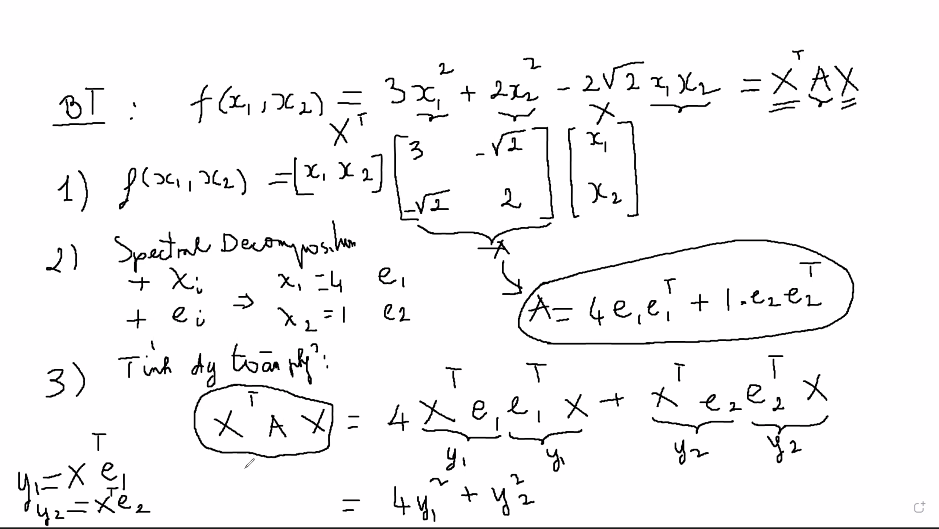 BT : f(x₁, x₂) = 3x₁² + 2x₂² − 2√2 x₁x₂ = XᵀAX
Xᵀ X
1) f(x₁, x₂) = [x₁ x₂] [3 −√2; −√2 2] [x₁; x₂]
A
2) Spectral Decomposition
+ λᵢ ⇒ λ₁ = 4 e₁
+ eᵢ λ₂ = 1 e₂
A = 4e₁e₁ᵀ + 1.e₂e₂ᵀ
3) Tính dạng toàn phương:
XᵀAX = 4Xᵀe₁e₁ᵀX + Xᵀe₂e₂ᵀX
y₁ y₁ y₂ y₂
y₁ = Xᵀe₁
y₂ = Xᵀe₂
= 4y₁² + y₂²